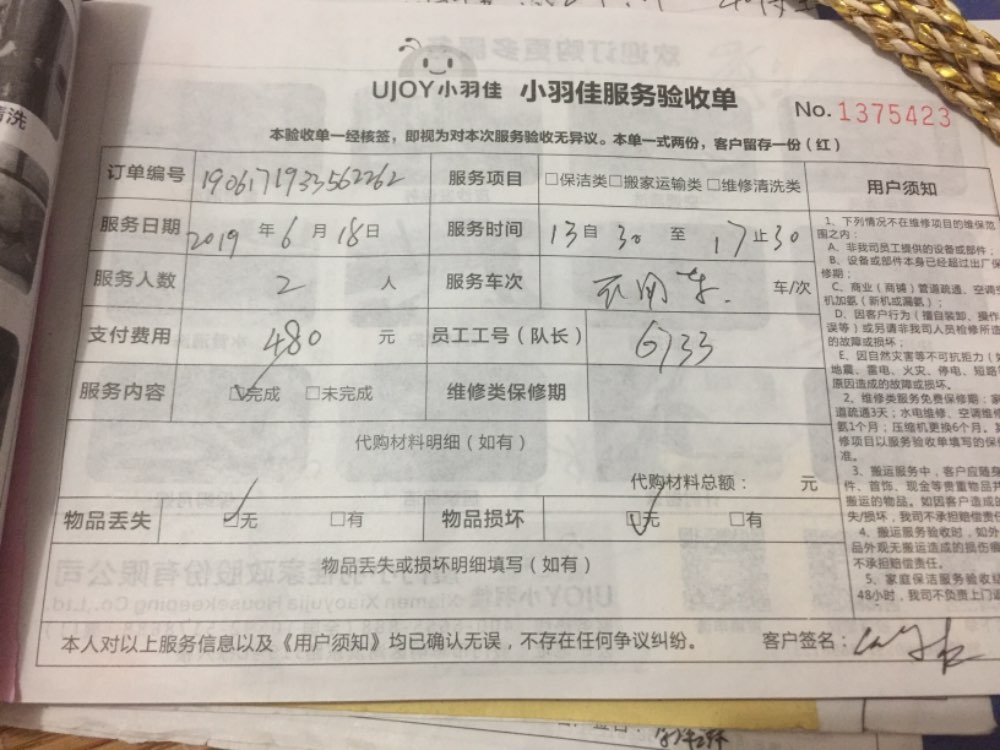 清洗
UJOY小羽佳 小羽佳服务验收单
No. 1375423
本验收单一经核签，即视为对本次服务验收无异议。本单一式两份，客户留存一份（红）
订单编号 1906171933562262 服务项目 □保洁类□搬家运输类□维修清洗类 用户须知
服务日期 2019 年 6 月 18 日 服务时间 13 自 30 至 17 止 30
服务人数 2 人 服务车次 车/次
支付费用 480 元 员工工号（队长） 6733
服务内容 ☑完成 □未完成 维修类保修期
代购材料明细（如有）
代购材料总额： 元
物品丢失 ☑无 □有 物品损坏 ☑无 □有
物品丢失或损坏明细填写（如有）
本人对以上服务信息以及《用户须知》均已确认无误，不存在任何争议纠纷。 客户签名：
1、下列情况不在维修项目的维保范
围之内：
A、非我司员工提供的设备或部件；
B、设备或部件本身已经超过出厂保
修期；
C、商业（商铺）管道疏通、空调空
机加氨（新机或漏氨）；
D、因客户行为（擅自装卸、操作
误等）或另请非我司人员检修所造
的故障或损坏；
E、因自然灾害等不可抗拒力（如
地震、雷电、火灾、停电、短路等
原因造成的故障或损坏。
2、维修类服务免费保修期：家
道疏通3天；水电维修、空调维修
氨1个月；压缩机更换6个月。其
修项目以服务验收单填写的保修
准。
3、搬运服务中，客户应随身
件、首饰、现金等贵重物品并
搬运的物品。如因客户造成的
失/损坏，我司不承担赔偿责任
4、搬运服务验收时，如外
品外观无搬运造成的损伤痕
不承担赔偿责任。
5、家庭保洁服务验收结
48小时，我司不负责上门返